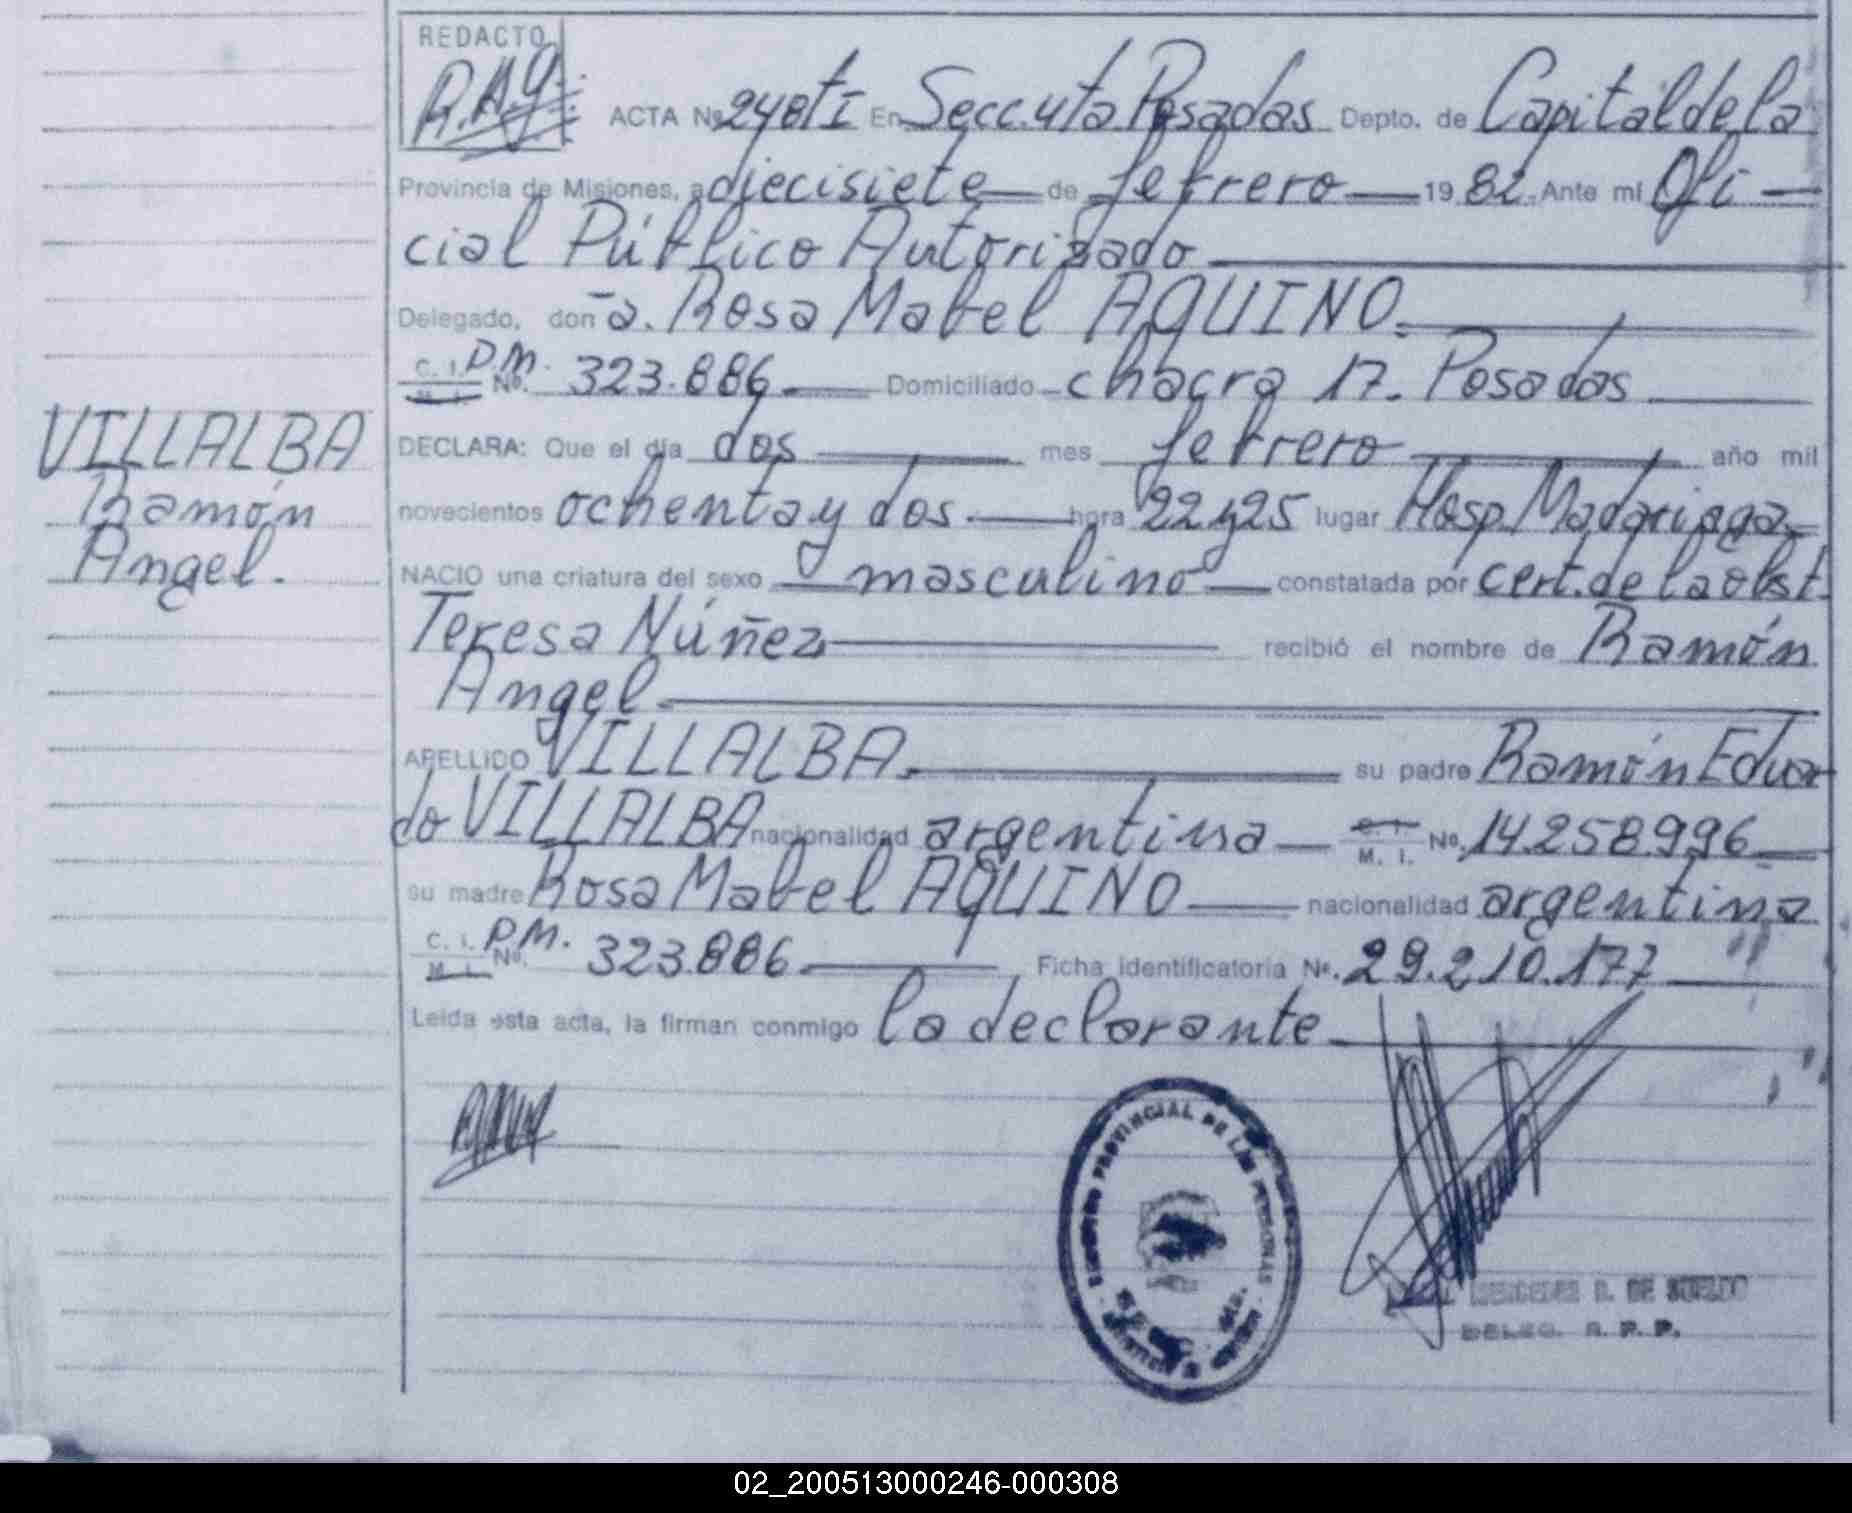 REDACTO
R.A.G.
ACTA Nº 248 TI En Secc. 4ta Posadas Depto. de Capital de la
Provincia de Misiones, a diecisiete de febrero 1982. Ante mi Ofi
cial Público Autorizado
Delegado, doña. Rosa Mabel AQUINO.
C. I. D.M. No. 323.886 Domiciliado chacra 17. Posadas
M. I.
VILLALBA
Ramón
Angel.
DECLARA: Que el día dos mes febrero año mil
novecientos ochenta y dos hora 22 y 25 lugar Hosp. Madariaga
NACIO una criatura del sexo masculino constatada por cert. de la obst.
Teresa Núñez recibió el nombre de Ramón
Angel
APELLIDO VILLALBA. su padre Ramón Eduar
do VILLALBA nacionalidad argentina C. I. No. 14.258.996
M. I.
su madre Rosa Mabel AQUINO nacionalidad argentina
C. I. D.M. No. 323.886 Ficha identificatoria Nº. 29.210.177
M. I.
Leída esta acta, la firman conmigo la declarante
PROVINCIAL DE LAS PERSONAS
DELEG. R. P. P.
02_200513000246-000308